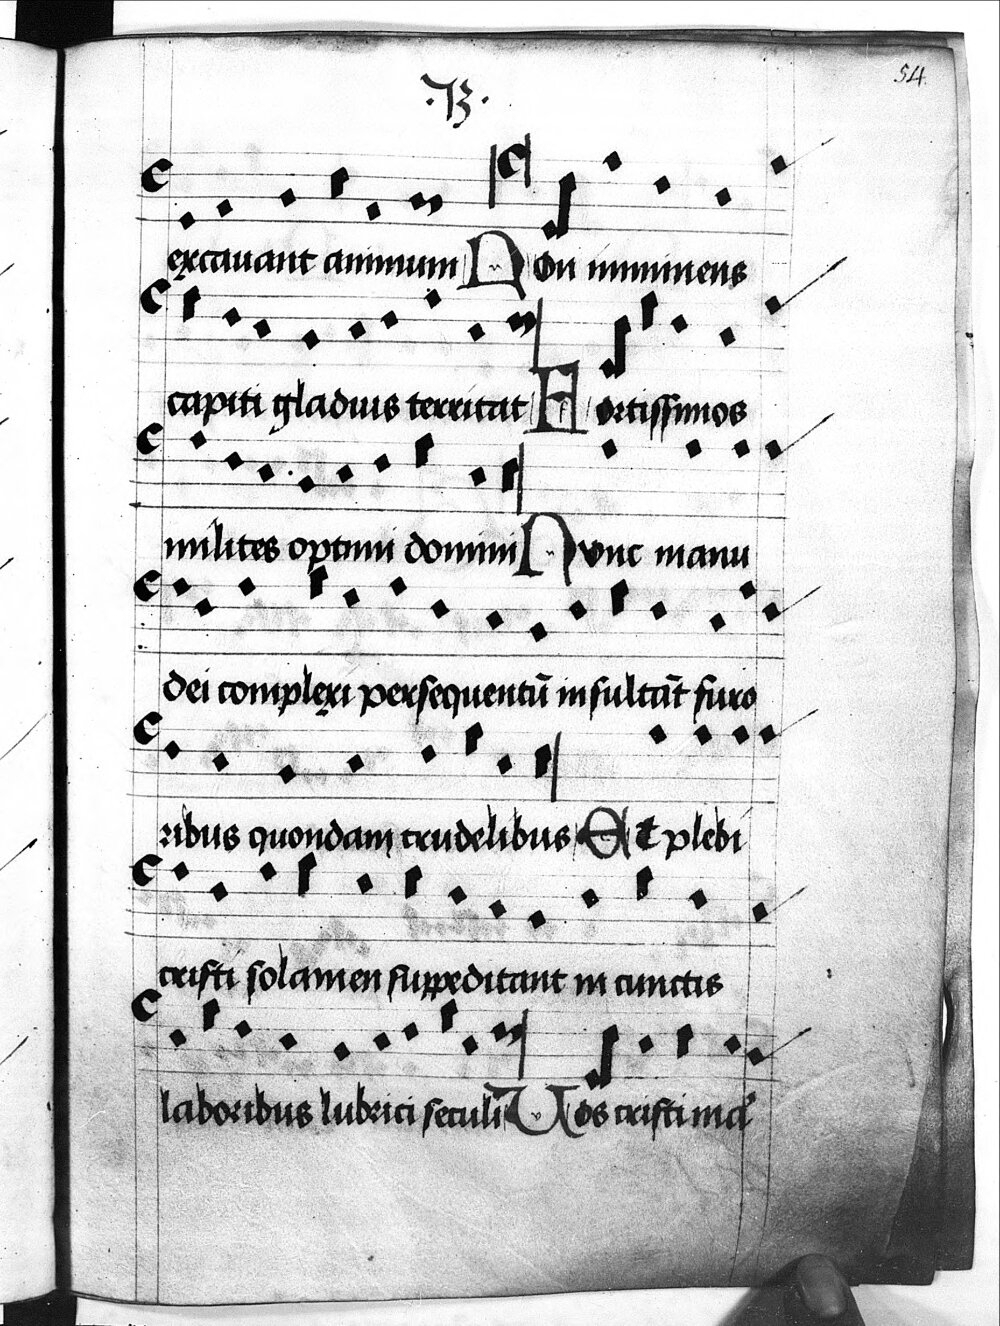 54
·B·
excauant animum Non imminens
capiti gladius territat Fortissimos
milites optimi domini Nunc manu
dei complexi persequentiū insultāt furo
ribus quondam crudelibus Et plebi
cristi solamen suppeditant in cunctis
laboribus lubrici seculi Vos cristi